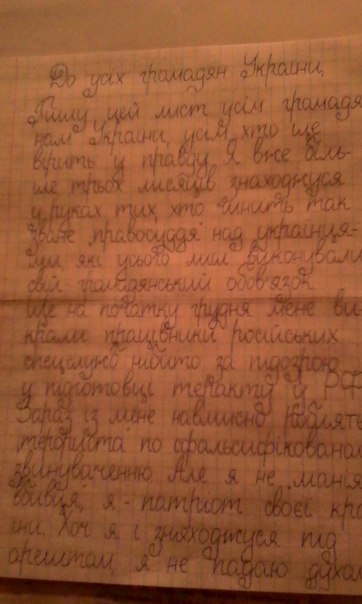 До усіх громадян України,
Пишу цей лист усім громадя-
нам України, усім хто ще
вірить у правду. Я вже біль-
ше трьох місяців знаходжуся
у руках тих, хто чинить так
зване правосуддя над українця-
ми, які усього лиш виконували
свій громадянський обов'язок
Ще на початку грудня мене ви-
крали працівники російських
спецслужб нібито за підозрою
у підготовці теракту у РФ
Зараз із мене навмисно роблять
терориста по сфальсифікованом
звинуваченню Але я не манія
вбивця, я - патріот своєї кра
їни. Хоч я і знаходжуся під
арештом, я не падаю духом